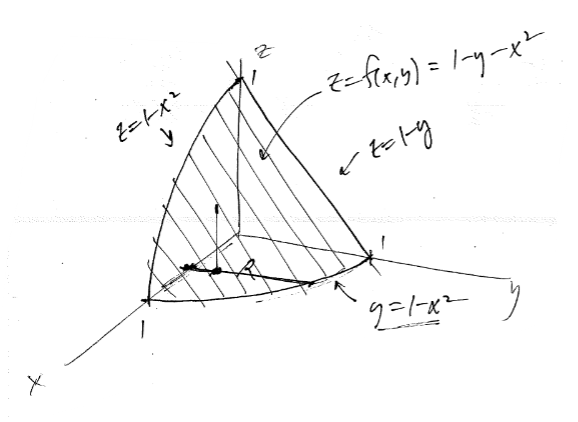 z
1
z=f(x,y) = 1-y-x²
z=1-x²
z=1-y
R
1
y=1-x²
y
1
x